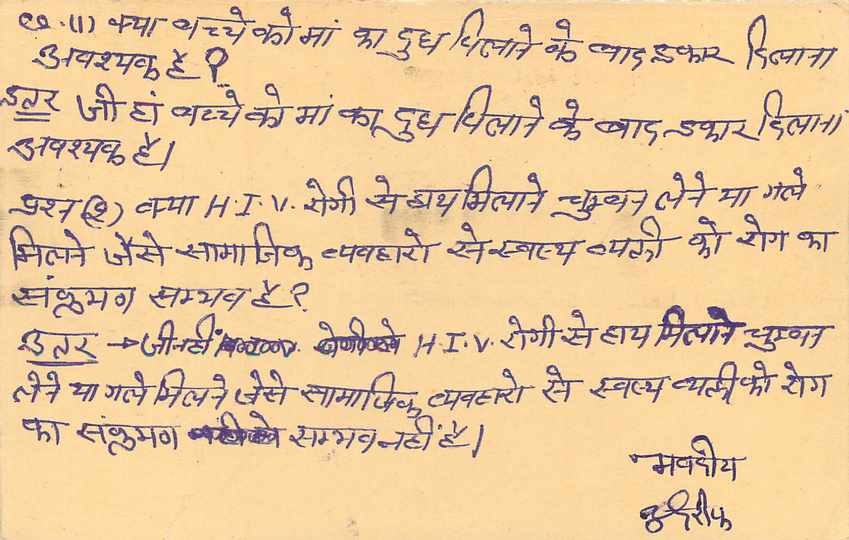 प्र.(1) क्या बच्चे को मां का दुध पिलाने के बाद डकार दिलाना
अवश्यक है ?
उतर जी हां बच्चे को मां का दुध पिलाने के बाद डकार दिलाना
अवश्यक है।
प्रश्न (2) क्या H.I.V. रोगी से हाथ मिलाने चुम्बन लेने या गले
मिलने जैसे सामाजिक व्यवहारो से स्वस्थ व्यक्ती को रोग का
संक्रमण सम्भव है ?
उतर → जी नहीं H.I.V. रोगी से हाथ मिलाने चुम्बन
लेने या गले मिलने जेसे सामाजिक व्यवहारो से स्वस्थ व्यक्ती को रोग
का संक्रमण सम्भव नहीं है।
भवदीय